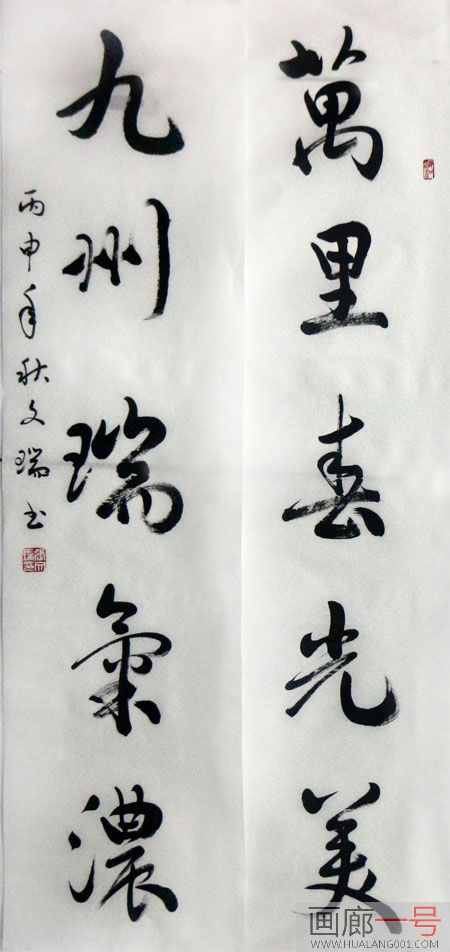 萬里春光美
九州瑞氣濃
丙申年秋文瑞书
画廊一号
WWW.HUALANG001.COM